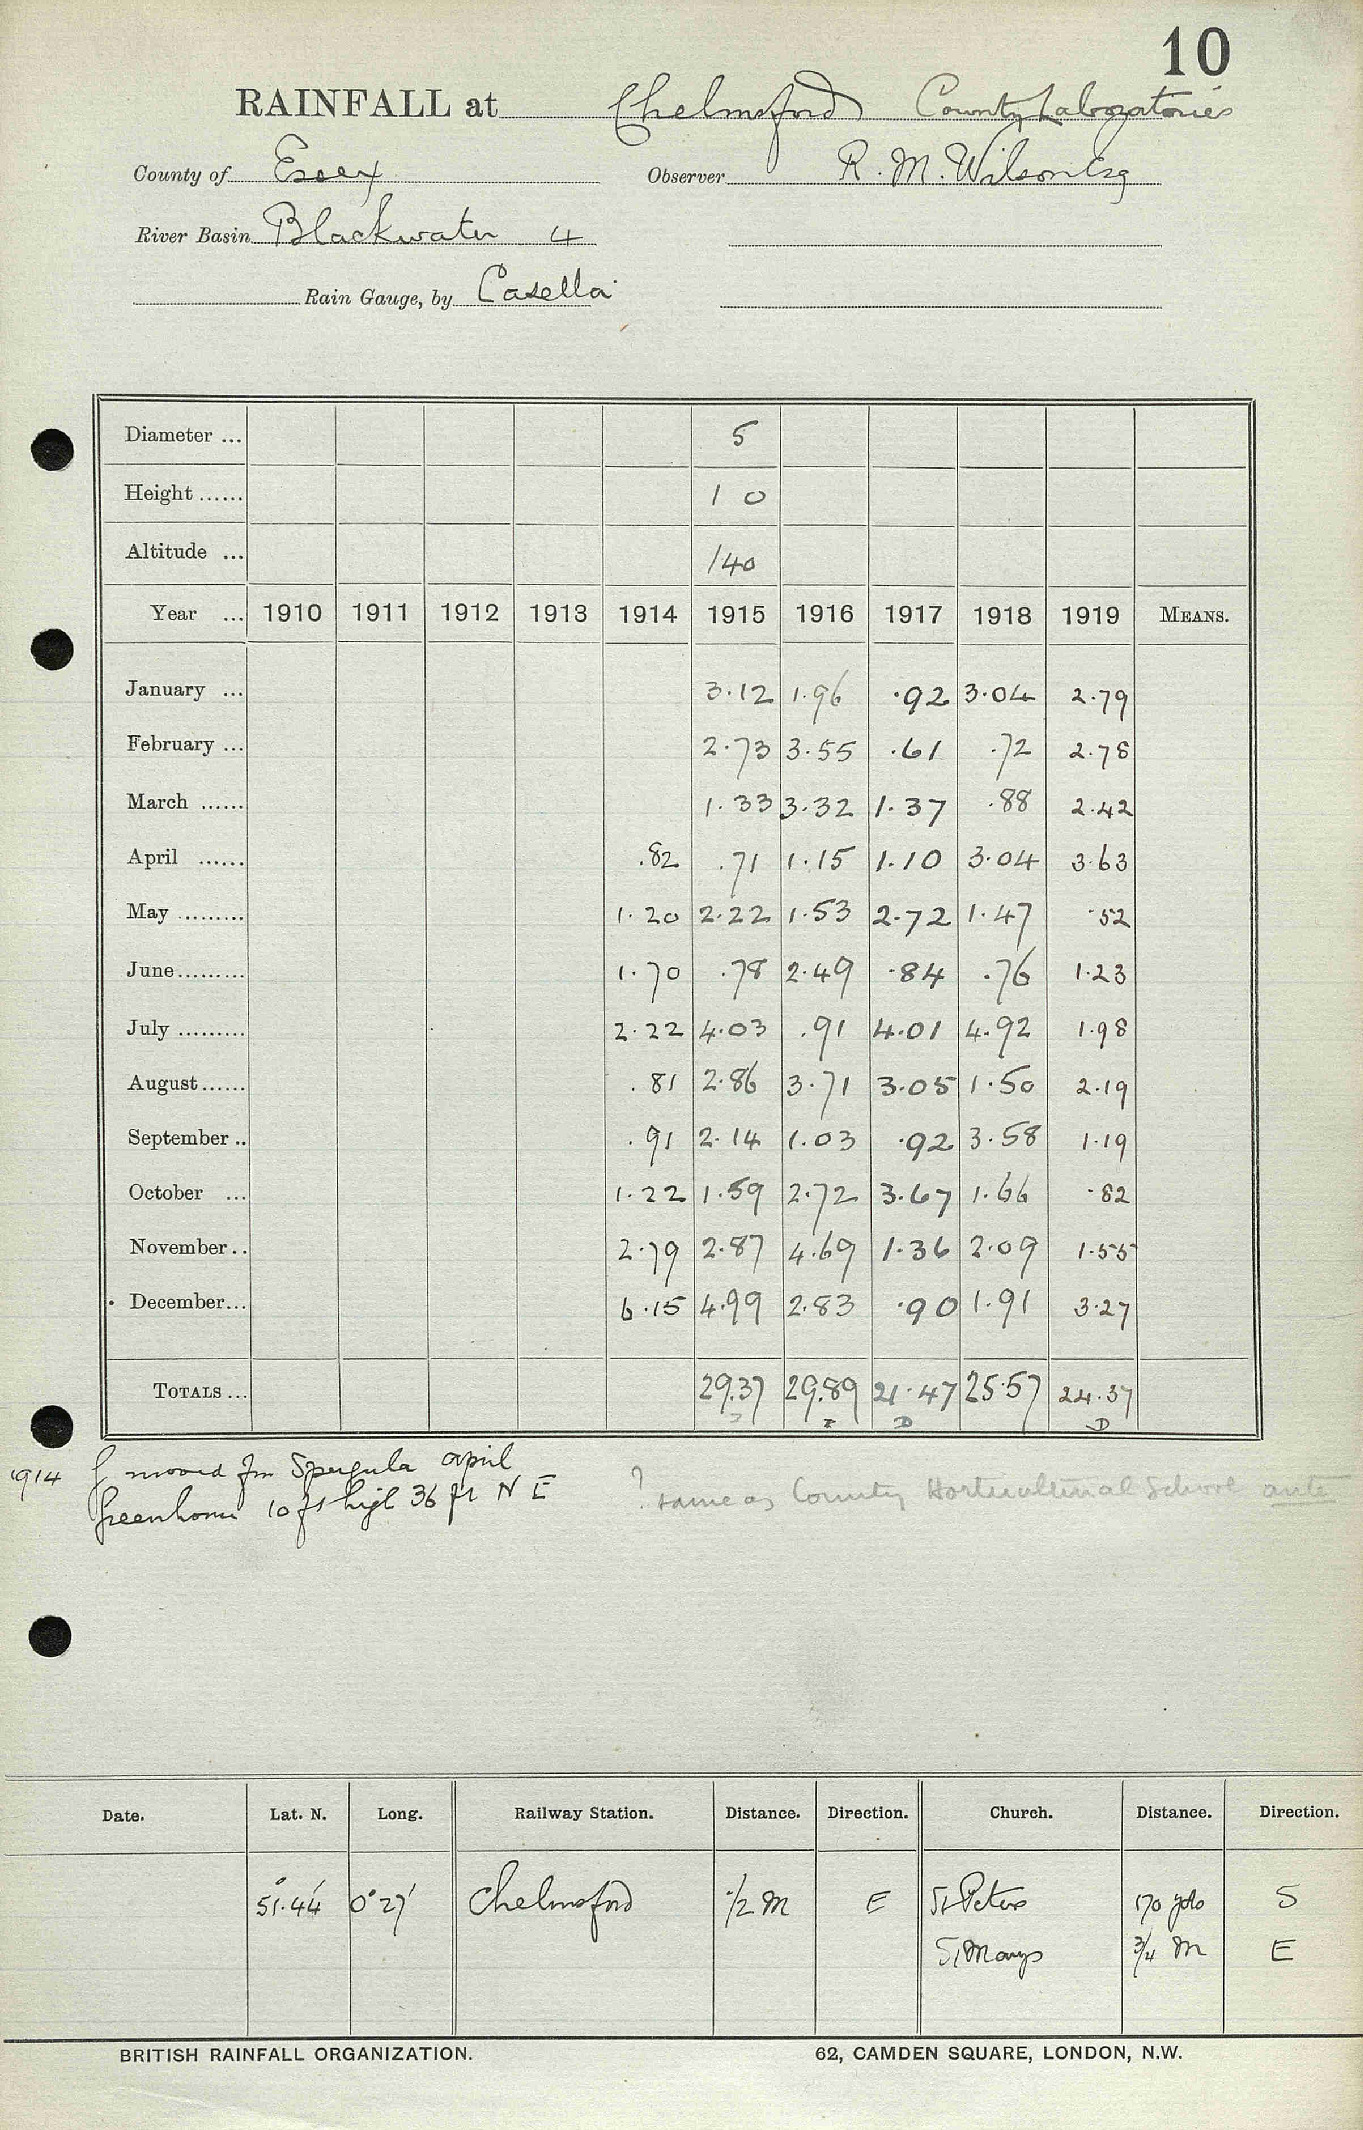 10
RAINFALL at Chelmsford County Laboratories
County of Essex Observer R. M. Wilson Esq
River Basin Blackwater 4
Rain Gauge, by Casella
Diameter ... 5
Height ...... 1 0
Altitude ... 140
Year ... 1910 1911 1912 1913 1914 1915 1916 1917 1918 1919 MEANS.
January ... 3.12 1.96 .92 3.04 2.79
February ... 2.73 3.55 .61 .72 2.78
March ...... 1.33 3.32 1.37 .88 2.42
April ...... .82 .71 1.15 1.10 3.04 3.63
May ......... 1.20 2.22 1.53 2.72 1.47 .52
June ......... 1.70 .78 2.49 .84 .76 1.23
July ......... 2.22 4.03 .91 4.01 4.92 1.98
August ...... .81 2.86 3.71 3.05 1.50 2.19
September .. .91 2.14 1.03 .92 3.58 1.19
October ... 1.22 1.59 2.72 3.67 1.66 .82
November .. 2.79 2.87 4.69 1.36 2.09 1.55
December ... 6.15 4.99 2.83 .90 1.91 3.27
TOTALS ... 29.37 29.89 21.47 25.57 24.37
D D
1914 G moved fm Spergula april
Greenhouse 10 ft high 36 ft N E
? same as County Horticultural School ante
Date. Lat. N. Long. Railway Station. Distance. Direction. Church. Distance. Direction.
51°.44' 0°27' Chelmsford 1/2 M E St Peters 170 yds S
St Marys 3/4 M E
BRITISH RAINFALL ORGANIZATION. 62, CAMDEN SQUARE, LONDON, N.W.